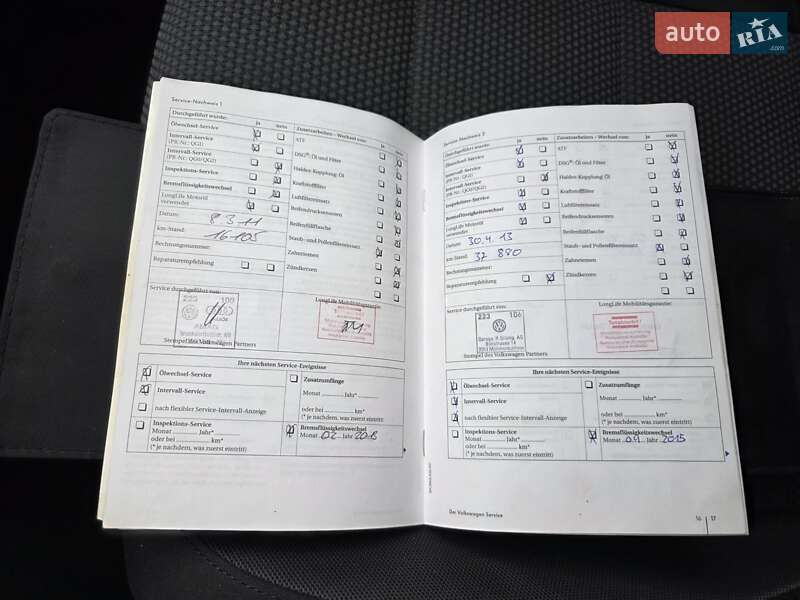 auto RIA .com
Service-Nachweis 1
Durchgeführt wurde: ja nein Zusatzarbeiten – Wechsel von: ja nein
Ölwechsel-Service ATF
Intervall-Service
(PR-Nr.: QG1) DSG®: Öl und Filter
Intervall-Service
(PR-Nr.: QG0/QG2) Haldex-Kupplung: Öl
Inspektions-Service Kraftstofffilter
Bremsflüssigkeitswechsel Luftfiltereinsatz
LongLife Motoröl
verwendet Reifendrucksensoren
Datum: 8 3 11 Reifenfüllflasche
km-Stand: 16 105 Staub- und Pollenfiltereinsatz
Rechnungsnummer: Zahnriemen
Reparaturempfehlung Zündkerzen
Service durchgeführt von: LongLife Mobilitätsgarantie:
100
Stempel des Volkswagen Partners
Ihre nächsten Service-Ereignisse
Ölwechsel-Service Zusatzumfänge
Intervall-Service Monat Jahr*
nach flexibler Service-Intervall-Anzeige oder bei km*
(* je nachdem, was zuerst eintritt)
Inspektions-Service Bremsflüssigkeitswechsel
Monat Jahr* Monat 02 Jahr 2013
oder bei km*
(* je nachdem, was zuerst eintritt)
Service-Nachweis 2
Durchgeführt wurde: ja nein Zusatzarbeiten – Wechsel von: ja nein
Ölwechsel-Service ATF
Intervall-Service
(PR-Nr.: QG1) DSG®: Öl und Filter
Intervall-Service
(PR-Nr.: QG0/QG2) Haldex-Kupplung: Öl
Inspektions-Service Kraftstofffilter
Bremsflüssigkeitswechsel Luftfiltereinsatz
LongLife Motoröl
verwendet Reifendrucksensoren
Datum: 30.4.13 Reifenfüllflasche
km-Stand: 37 880 Staub- und Pollenfiltereinsatz
Rechnungsnummer: Zahnriemen
Reparaturempfehlung Zündkerzen
Service durchgeführt von: LongLife Mobilitätsgarantie:
223 106
Stempel des Volkswagen Partners
Ihre nächsten Service-Ereignisse
Ölwechsel-Service Zusatzumfänge
Intervall-Service Monat Jahr*
nach flexibler Service-Intervall-Anzeige oder bei km*
(* je nachdem, was zuerst eintritt)
Inspektions-Service Bremsflüssigkeitswechsel
Monat Jahr* Monat 04 Jahr 2015
oder bei km*
(* je nachdem, was zuerst eintritt)
Der Volkswagen Service 16 17